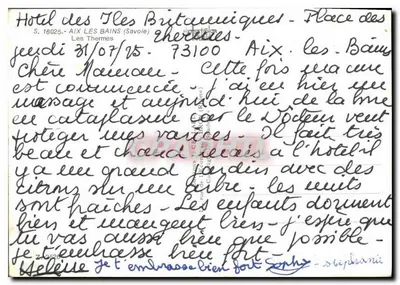 Hotel des Iles Britanniques - Place des
thermes -
S. 16025 - AIX LES BAINS (Savoie)
Les Thermes
jeudi 31/07/75. 73100 Aix. les. Bains
Chère Maman - Cette fois ma cure
est commencée - j'ai eu hier un
massage et aujourd'hui de la boue
en cataplasme car le Docteur veut
proteger mes varices - Il fait très
beau et chaud mais à l'hôtel il
y a un grand jardin avec des
citrons sur un arbre - les nuits
sont fraîches - Les enfants dorment
bien et mangent bien - j'espère que
tu vas aussi bien que possible -
je t'embrasse bien fort -
Hélène je t'embrasse bien fort Sophie - stéphanie